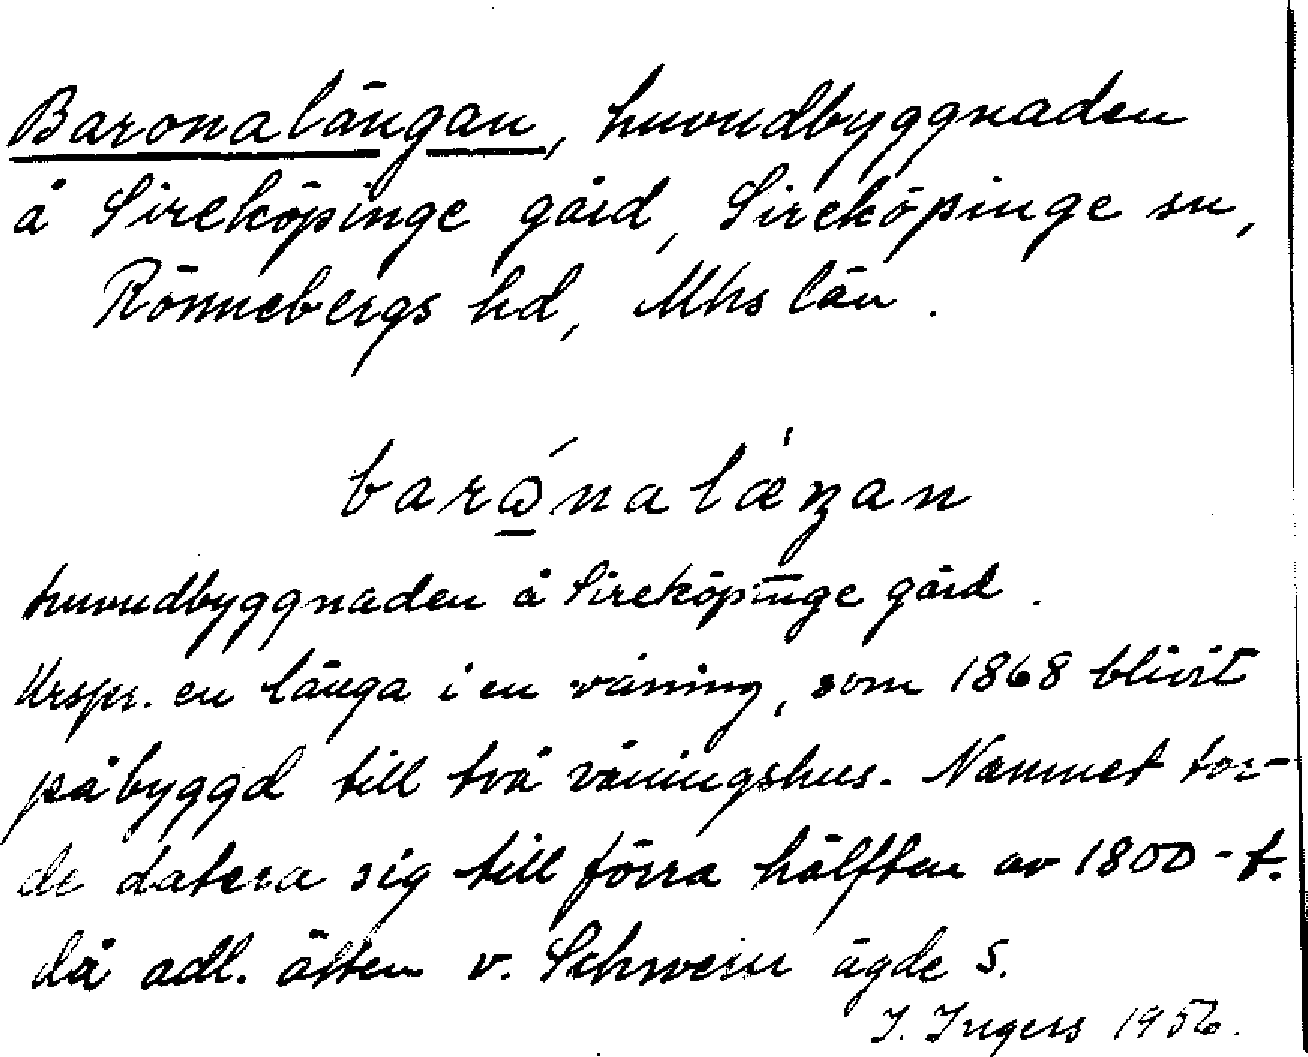 Baronalängan, huvudbyggnaden
å Sireköpinge gård, Sireköpinge sn,
Rönnebergs hd, Mhs län.
huvudbyggnaden å Sireköpinge gård.
Urspr. en länga i en våning, som 1868 blivit
påbyggd till två våningshus. Namnet tor-
de datera sig till förra hälften av 1800-t.
då adl. ätten v. Schwerin ägde S.
I. Ingers 1956.